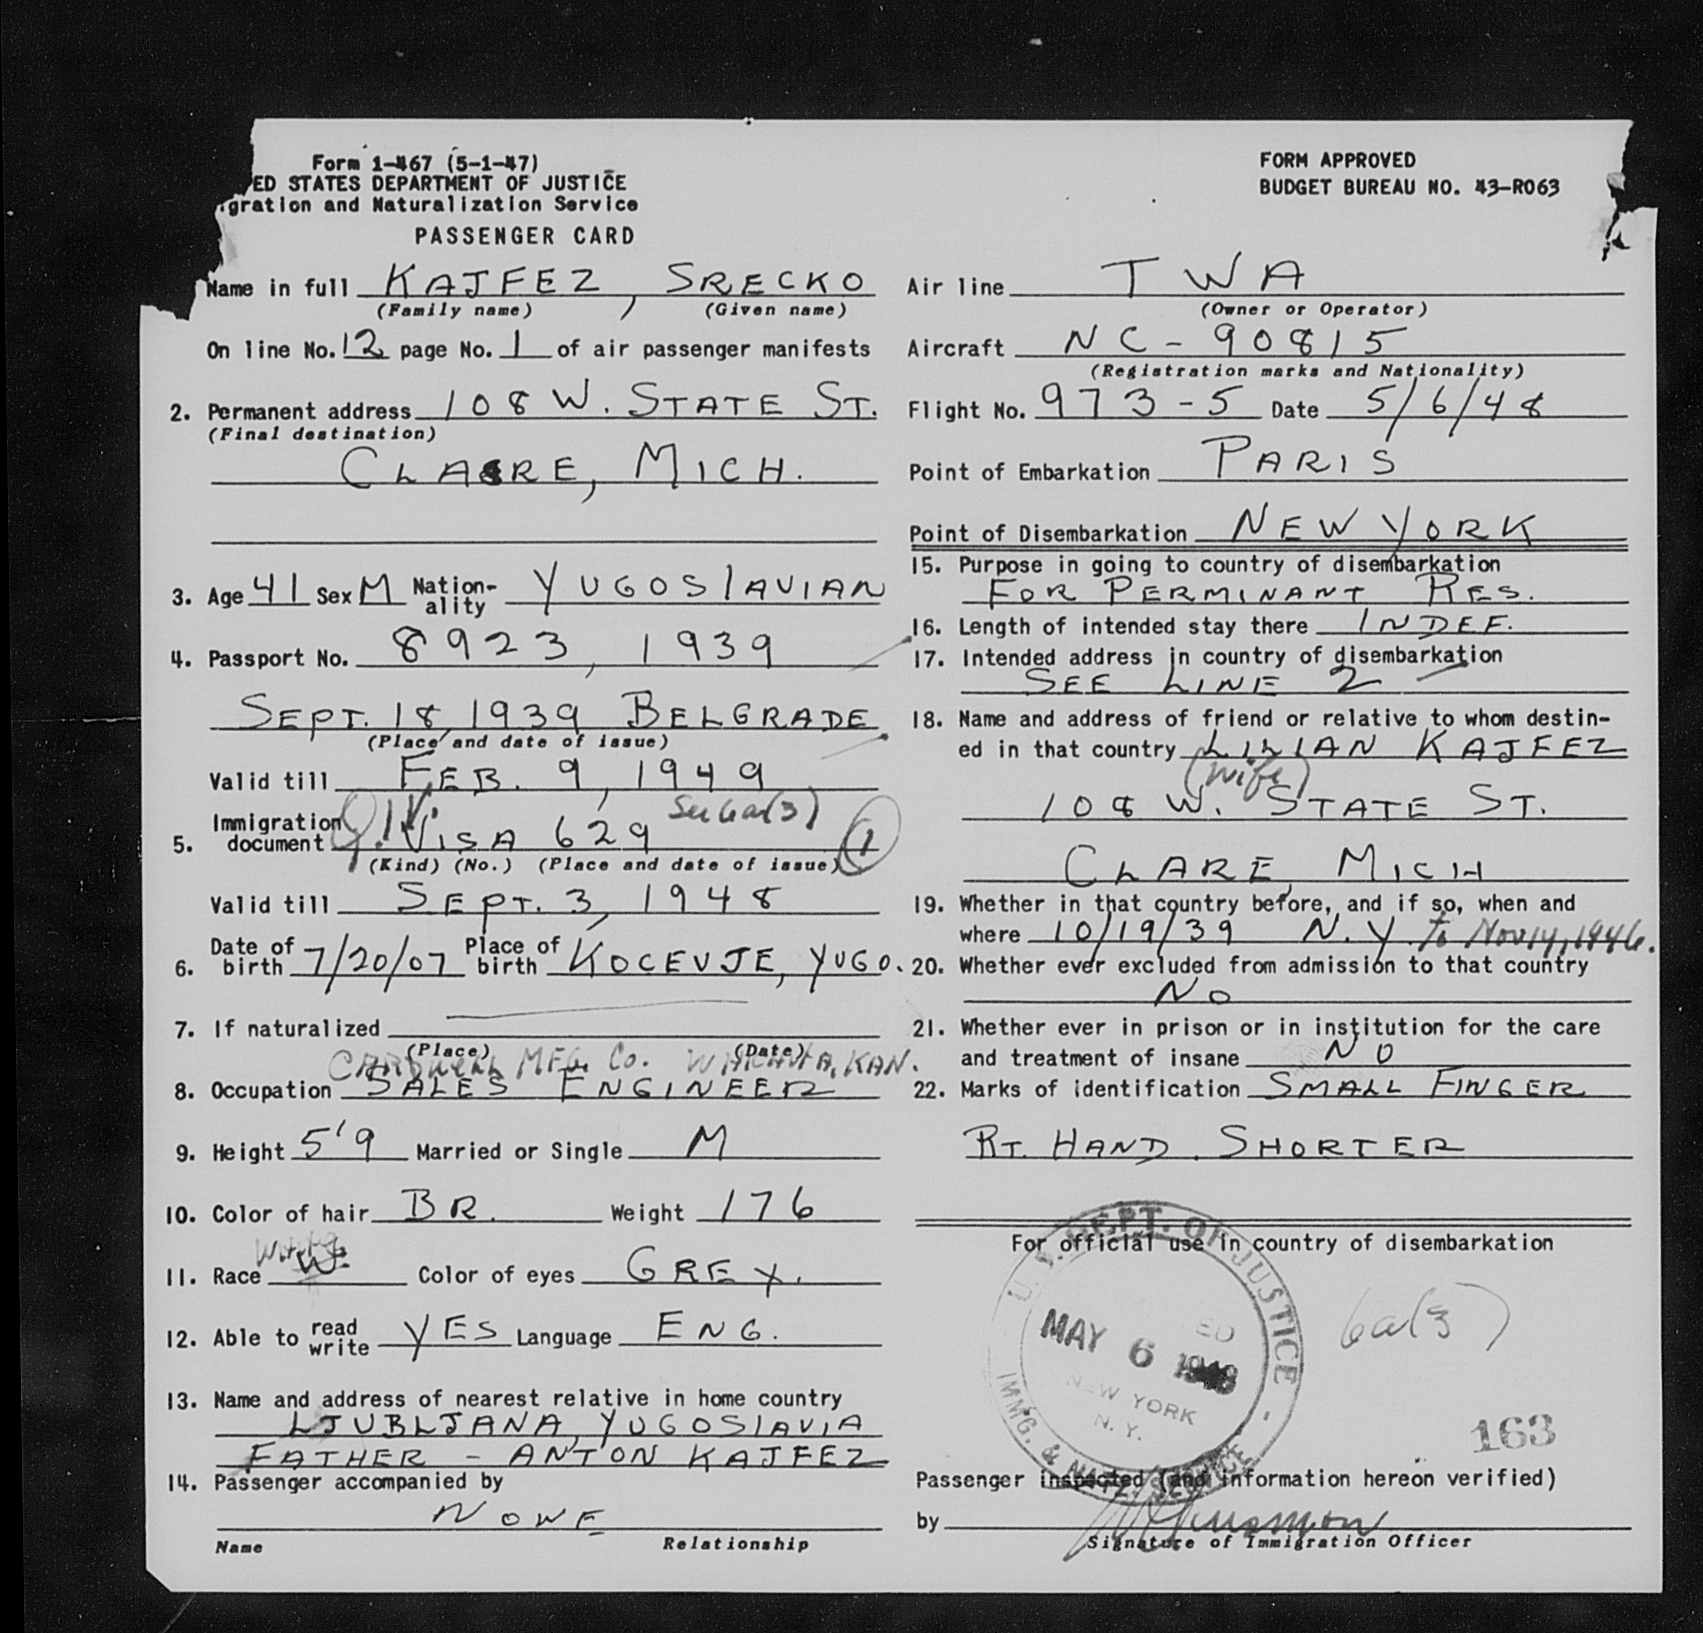 Form 1-467 (5-1-47)
ED STATES DEPARTMENT OF JUSTICE
gration and Naturalization Service
PASSENGER CARD
FORM APPROVED
BUDGET BUREAU NO. 43-R063
Name in full KAJFEZ, SRECKO
(Family name) (Given name)
On line No. 12 page No. 1 of air passenger manifests
2. Permanent address 108 W. STATE ST.
(Final destination)
CLARE, MICH.
3. Age 41 Sex M Nation-ality YUGOSLAVIAN
4. Passport No. 8923, 1939
SEPT. 18 1939 BELGRADE
(Place and date of issue)
Valid till FEB. 9, 1949
See 6a(3)
5. Immigration document VISA 629 1
(Kind) (No.) (Place and date of issue)
Valid till SEPT. 3, 1948
6. Date of birth 7/20/07 Place of birth KOCEVJE, YUGO.
7. If naturalized
(Place) (Date)
CARDWELL MFG. CO. WICHITA, KAN.
8. Occupation SALES ENGINEER
9. Height 5'9 Married or Single M
10. Color of hair BR. Weight 176
11. Race W. Color of eyes GREY.
12. Able to read write YES Language ENG.
13. Name and address of nearest relative in home country
LJUBLJANA, YUGOSLAVIA
FATHER - ANTON KAJFEZ
14. Passenger accompanied by
NONE
Name Relationship
Air line TWA
(Owner or Operator)
Aircraft NC-90815
(Registration marks and Nationality)
Flight No. 973-5 Date 5/6/48
Point of Embarkation PARIS
Point of Disembarkation NEW YORK
15. Purpose in going to country of disembarkation
FOR PERMINANT RES.
16. Length of intended stay there INDEF.
17. Intended address in country of disembarkation
SEE LINE 2
18. Name and address of friend or relative to whom destin-
ed in that country LILIAN KAJFEZ
(Wife)
108 W. STATE ST.
CLARE, MICH
19. Whether in that country before, and if so, when and
where 10/19/39 N.Y. to Nov 14, 1946.
20. Whether ever excluded from admission to that country
NO
21. Whether ever in prison or in institution for the care
and treatment of insane NO
22. Marks of identification SMALL FINGER
RT. HAND SHORTER
For official use in country of disembarkation
U. S. DEPT. OF JUSTICE
MAY 6 1948
NEW YORK
N. Y.
IMMG. & NATZ. SERVICE
6a(3)
163
Passenger inspected (and information hereon verified)
by
Signature of Immigration Officer